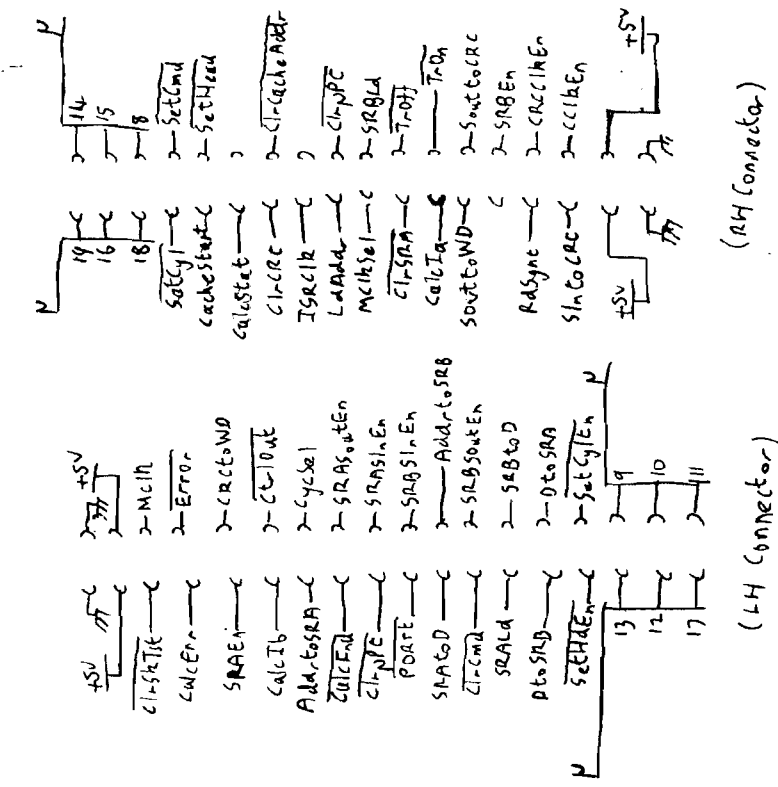 +5V
ClrSkTst
CalcErr
SRAEn
CalcIb
AddrtoSRA
CalcEnd
ClrµPC
PORTE
SRAtoD
ClrCmd
SRALd
DtoSRB
SetHdEn
µ
13
12
17
+5V
Mclk
Error
CRCtoWD
CtrlOut
CycSel
SRASoutEn
SRASInEn
SRBSInEn
AddrtoSRB
SRBSoutEn
SRBtoD
DtoSRA
SetCylEn
µ
9
10
11
(LH Connector)
µ
19
16
18
SetCyl
CacheStart
CalcStat
ClrCRC
ISRClk
LdAddr
MClkSel
ClrSRA
CalcIa
SouttoWD
RdSync
SIntoCRC
+5V
µ
14
15
8
SetCmd
SetHead
ClrCacheAddr
ClrµPC
SRBLd
TrOff
TrOn
SouttoCRC
SRBEn
CRCClkEn
CClkEn
+5V
(RH Connector)